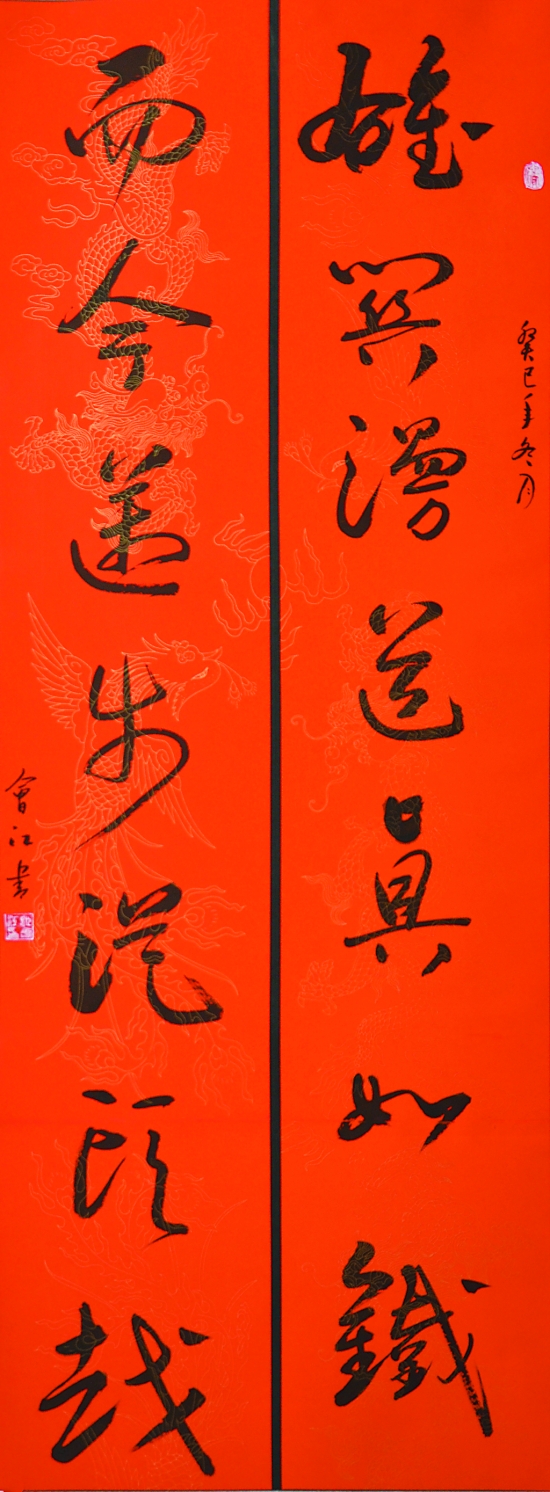 癸巳年冬月
雄關漫道真如鐵
而今邁步從頭越
會江書